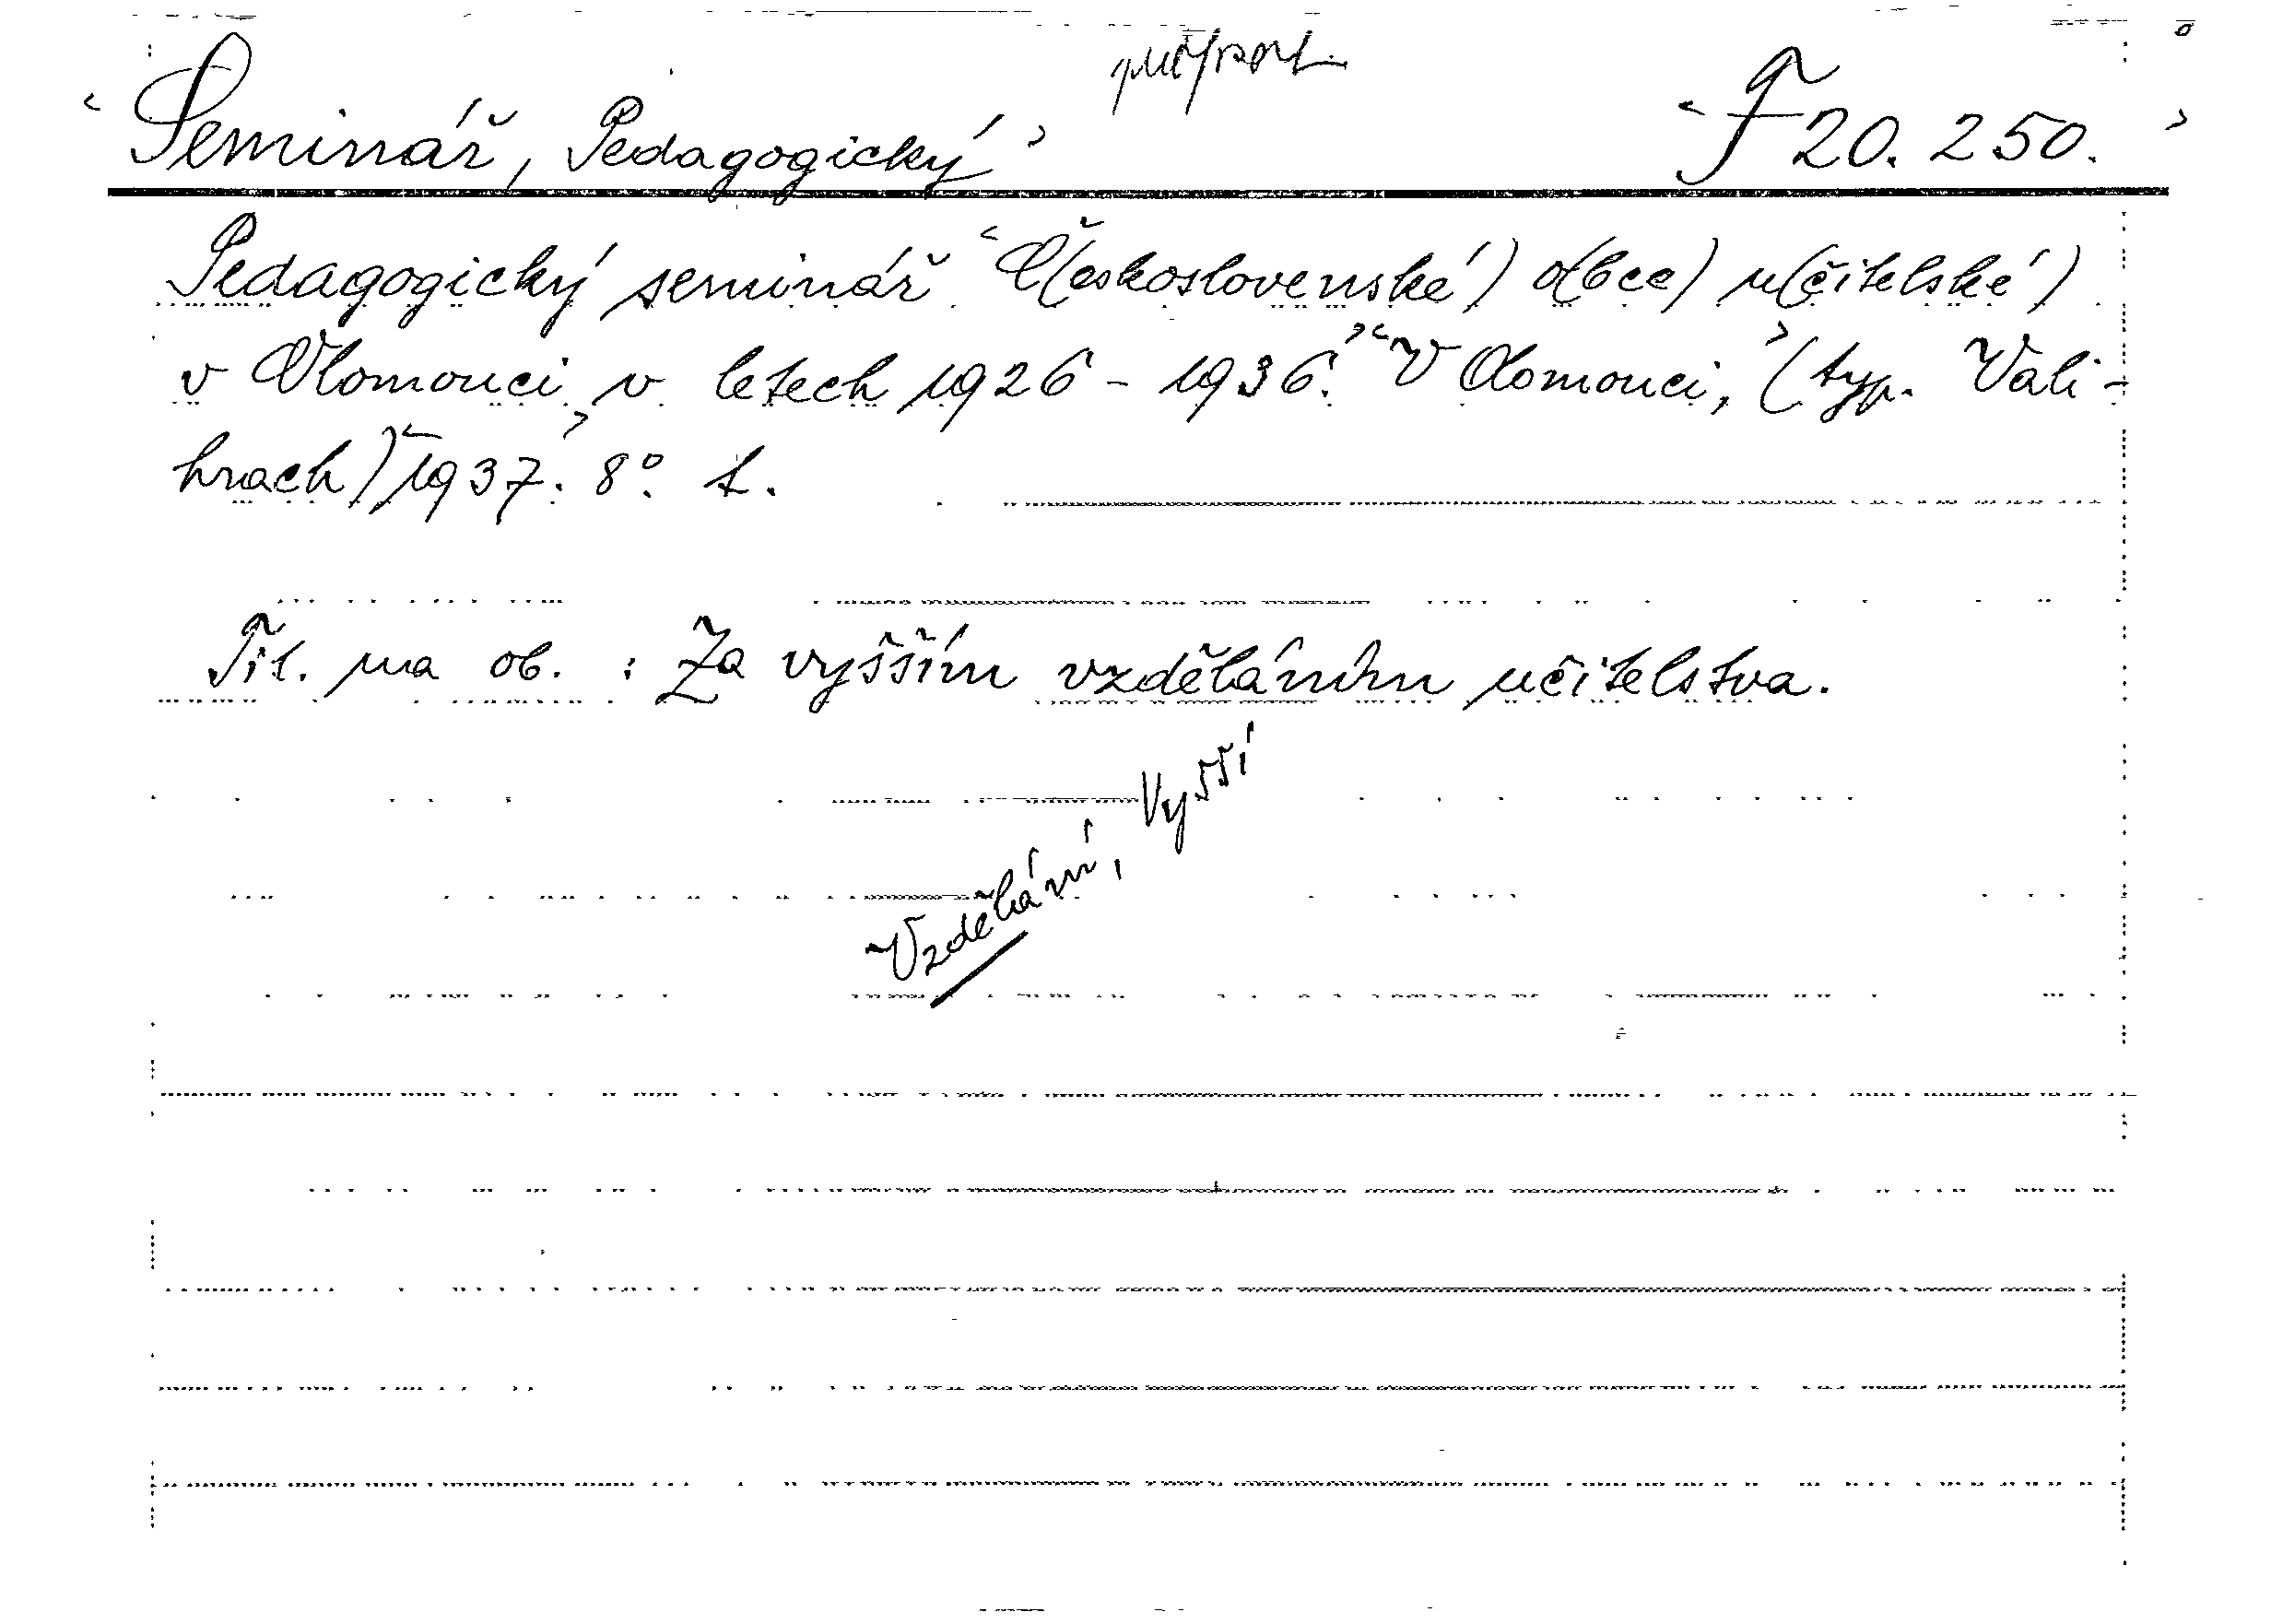 Seminář, Pedagogický F 20.250.
Pedagogický seminář Č(eskoslovenské) o(bce) u(čitelské)
v Olomouci v letech 1926 - 1936. V Olomouci, (typ. Vali-
hrach) 1937. 8°. 1.
Tit. na ob. : Za vyšším vzděláním učitelstva.
Vzdělání, Vyšší